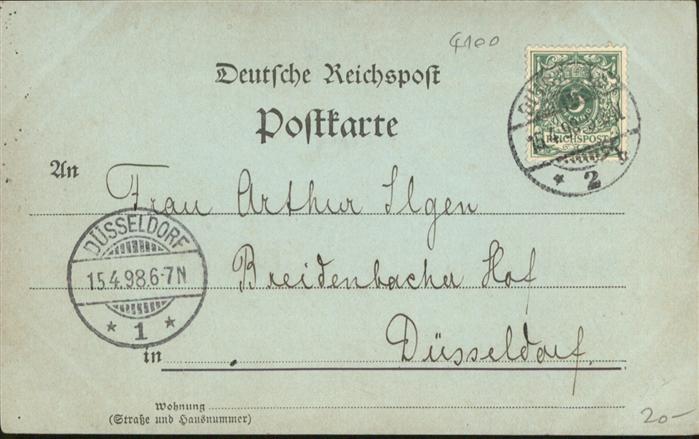 4100
Deutsche Reichspost
Postkarte
5
REICHSPOST
* 2
An Frau Arthur Ilgen
DÜSSELDORF
15.4.98.6-7N
* 1 *
Breidenbacher Hof
in Düsseldorf.
Wohnung
(Straße und Hausnummer)
20-